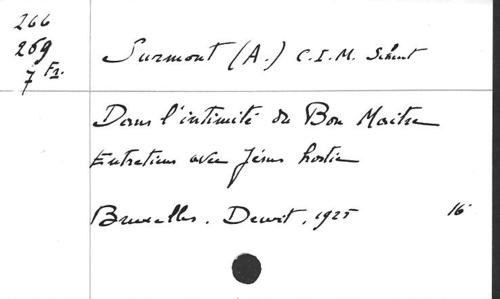 266
269
7 Fr.
Surmont (A.) C.I.M. Scheut
Dans l'intimité du Bon Maitre
Entretiens avec Jésus hostie
Bruxelles. Dewit, 1925
16